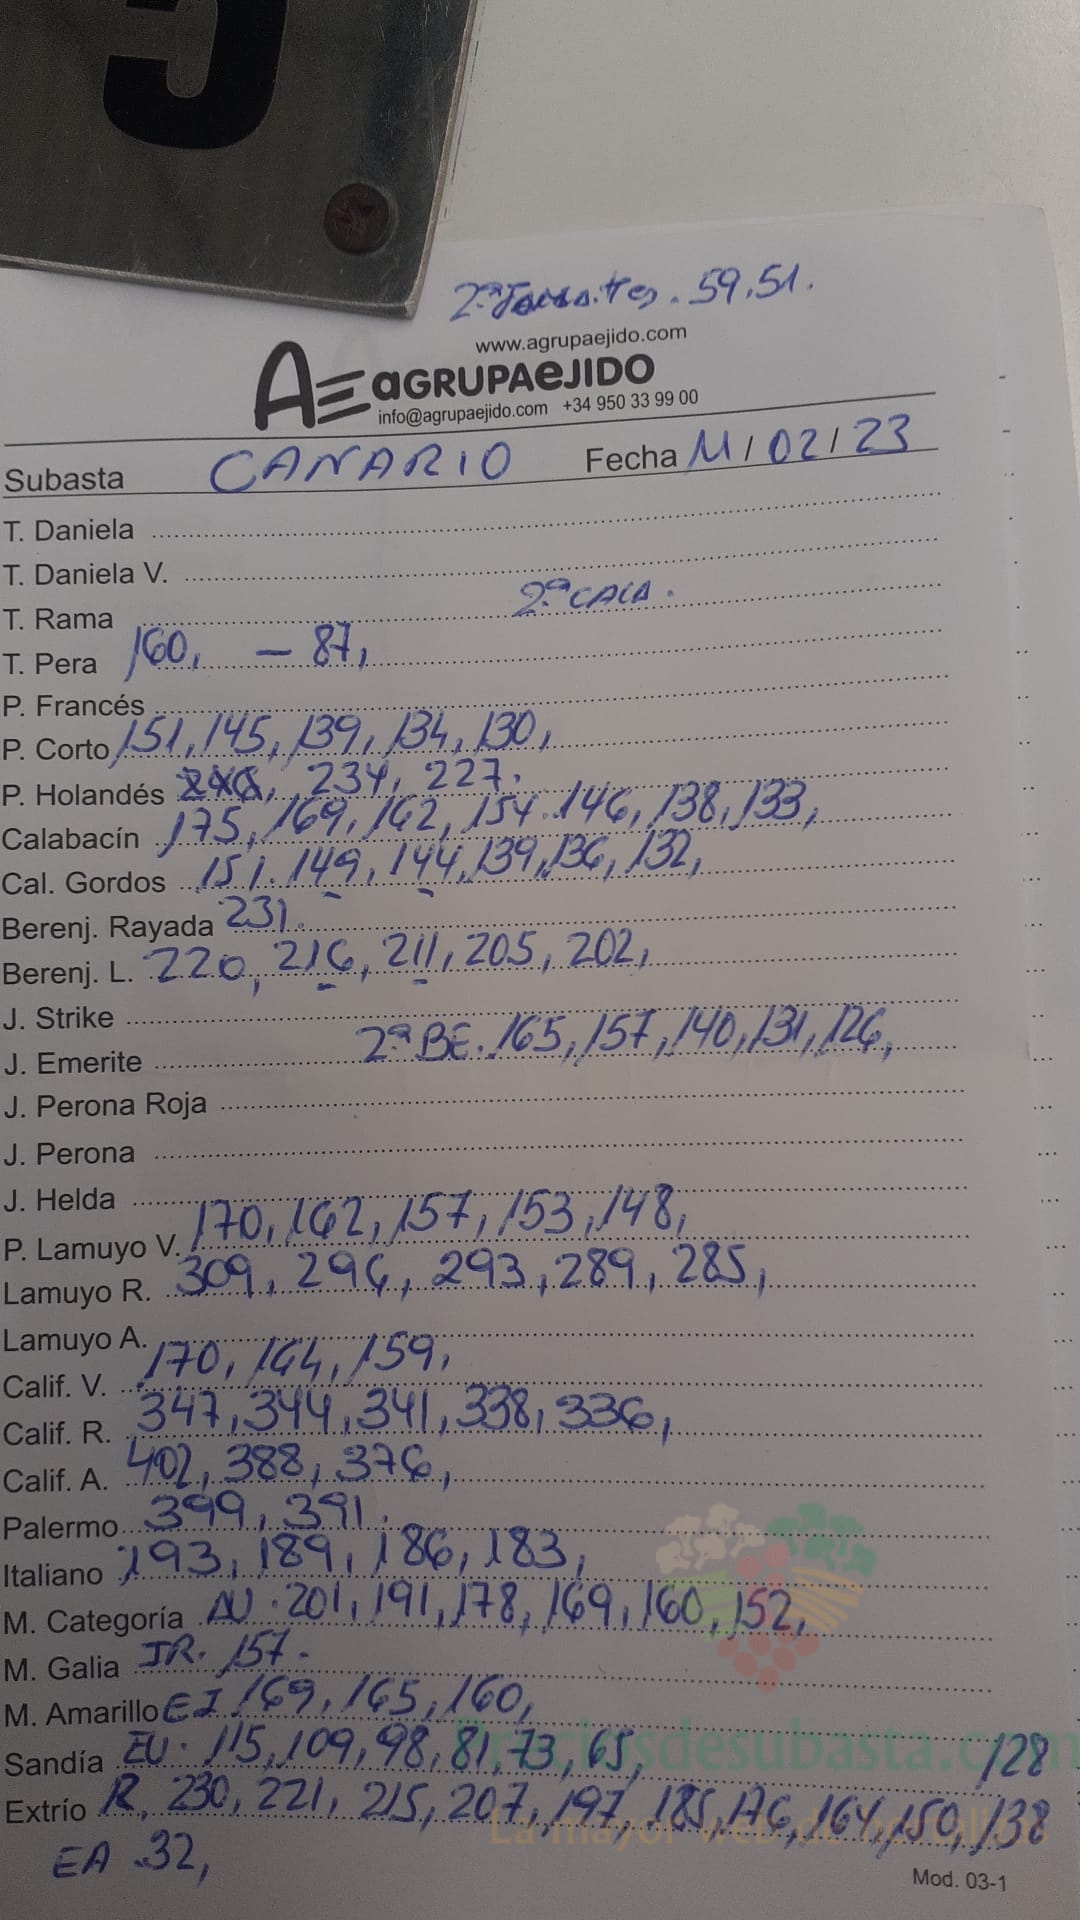 5
2ª Tomates. 59, 51.
www.agrupaejido.com
AE aGRUPAeJIDO
info@agrupaejido.com +34 950 33 99 00
Subasta CANARIO Fecha 11/02/23
T. Daniela
T. Daniela V.
T. Rama 2ª CALA.
T. Pera 160, - 87,
P. Francés
P. Corto 151, 145, 139, 134, 130,
P. Holandés 240, 234, 227.
Calabacín 175, 169, 162, 154. 146, 138, 133,
Cal. Gordos 151. 149, 144, 139, 136, 132,
Berenj. Rayada 231.
Berenj. L. 220, 216, 211, 205, 202,
J. Strike
J. Emerite 2ª BE. 165, 157, 140, 131, 126,
J. Perona Roja
J. Perona
J. Helda
P. Lamuyo V. 170, 162, 157, 153, 148,
Lamuyo R. 309, 296, 293, 289, 285,
Lamuyo A.
Calif. V. 170, 164, 159,
Calif. R. 347, 344, 341, 338, 336,
Calif. A. 402, 388, 376,
Palermo 399, 391.
Italiano 193, 189, 186, 183,
M. Categoría AU. 201, 191, 178, 169, 160, 152,
M. Galia IR. 157.
M. Amarillo EI 169, 165, 160,
Sandía EU. 115, 109, 98, 81, 73, 65, 128
Extrío R, 230, 221, 215, 207, 197, 185, 176, 164, 150, 138
EA 32,
Preciosdesubasta.com
La mayor web de
Mod. 03-1